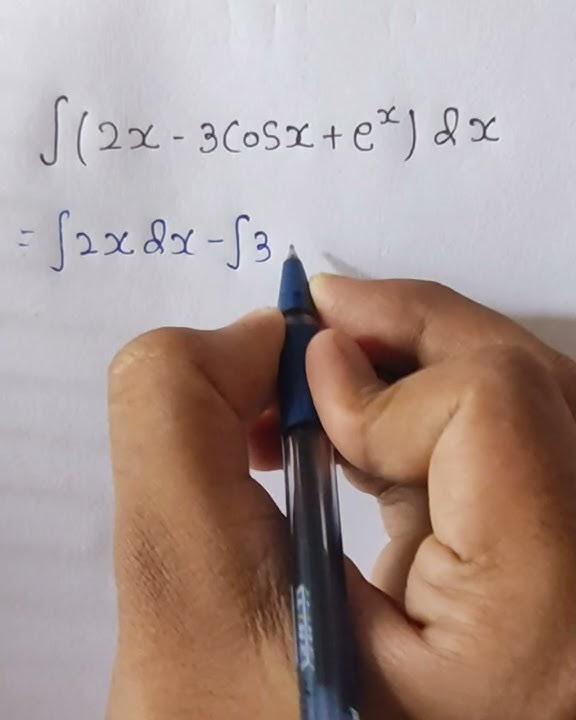 ∫(2x - 3Cosx + eˣ) dx
= ∫2x dx - ∫3